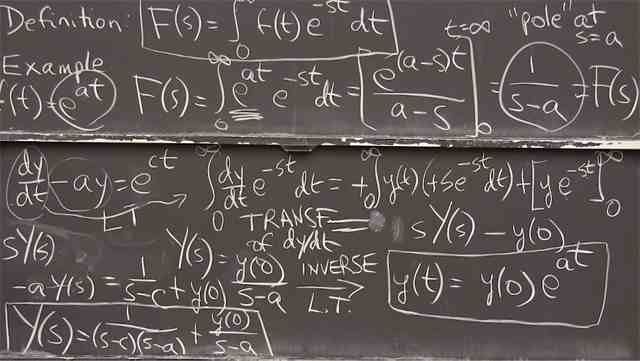 Definition: F(s) = ∫₀^∞ f(t) e^{-st} dt
"pole" at s = a
Example
f(t) = e^{at} F(s) = ∫₀^∞ e^{at} e^{-st} dt = [e^{(a-s)t} / (a-s)]₀^{t=∞} = 1/(s-a) = F(s)
dy/dt - ay = e^{ct} ∫₀^∞ dy/dt e^{-st} dt = +∫₀^∞ y(t) (+s e^{-st} dt) + [y e^{-st}]₀^∞
LT
TRANSF of dy/dt = sY(s) - y(0)
sY(s) - aY(s) = 1/(s-c) + y(0)
Y(s) = y(0)/(s-a) INVERSE L.T. → y(t) = y(0) e^{at}
Y(s) = 1/((s-c)(s-a)) + y(0)/(s-a)